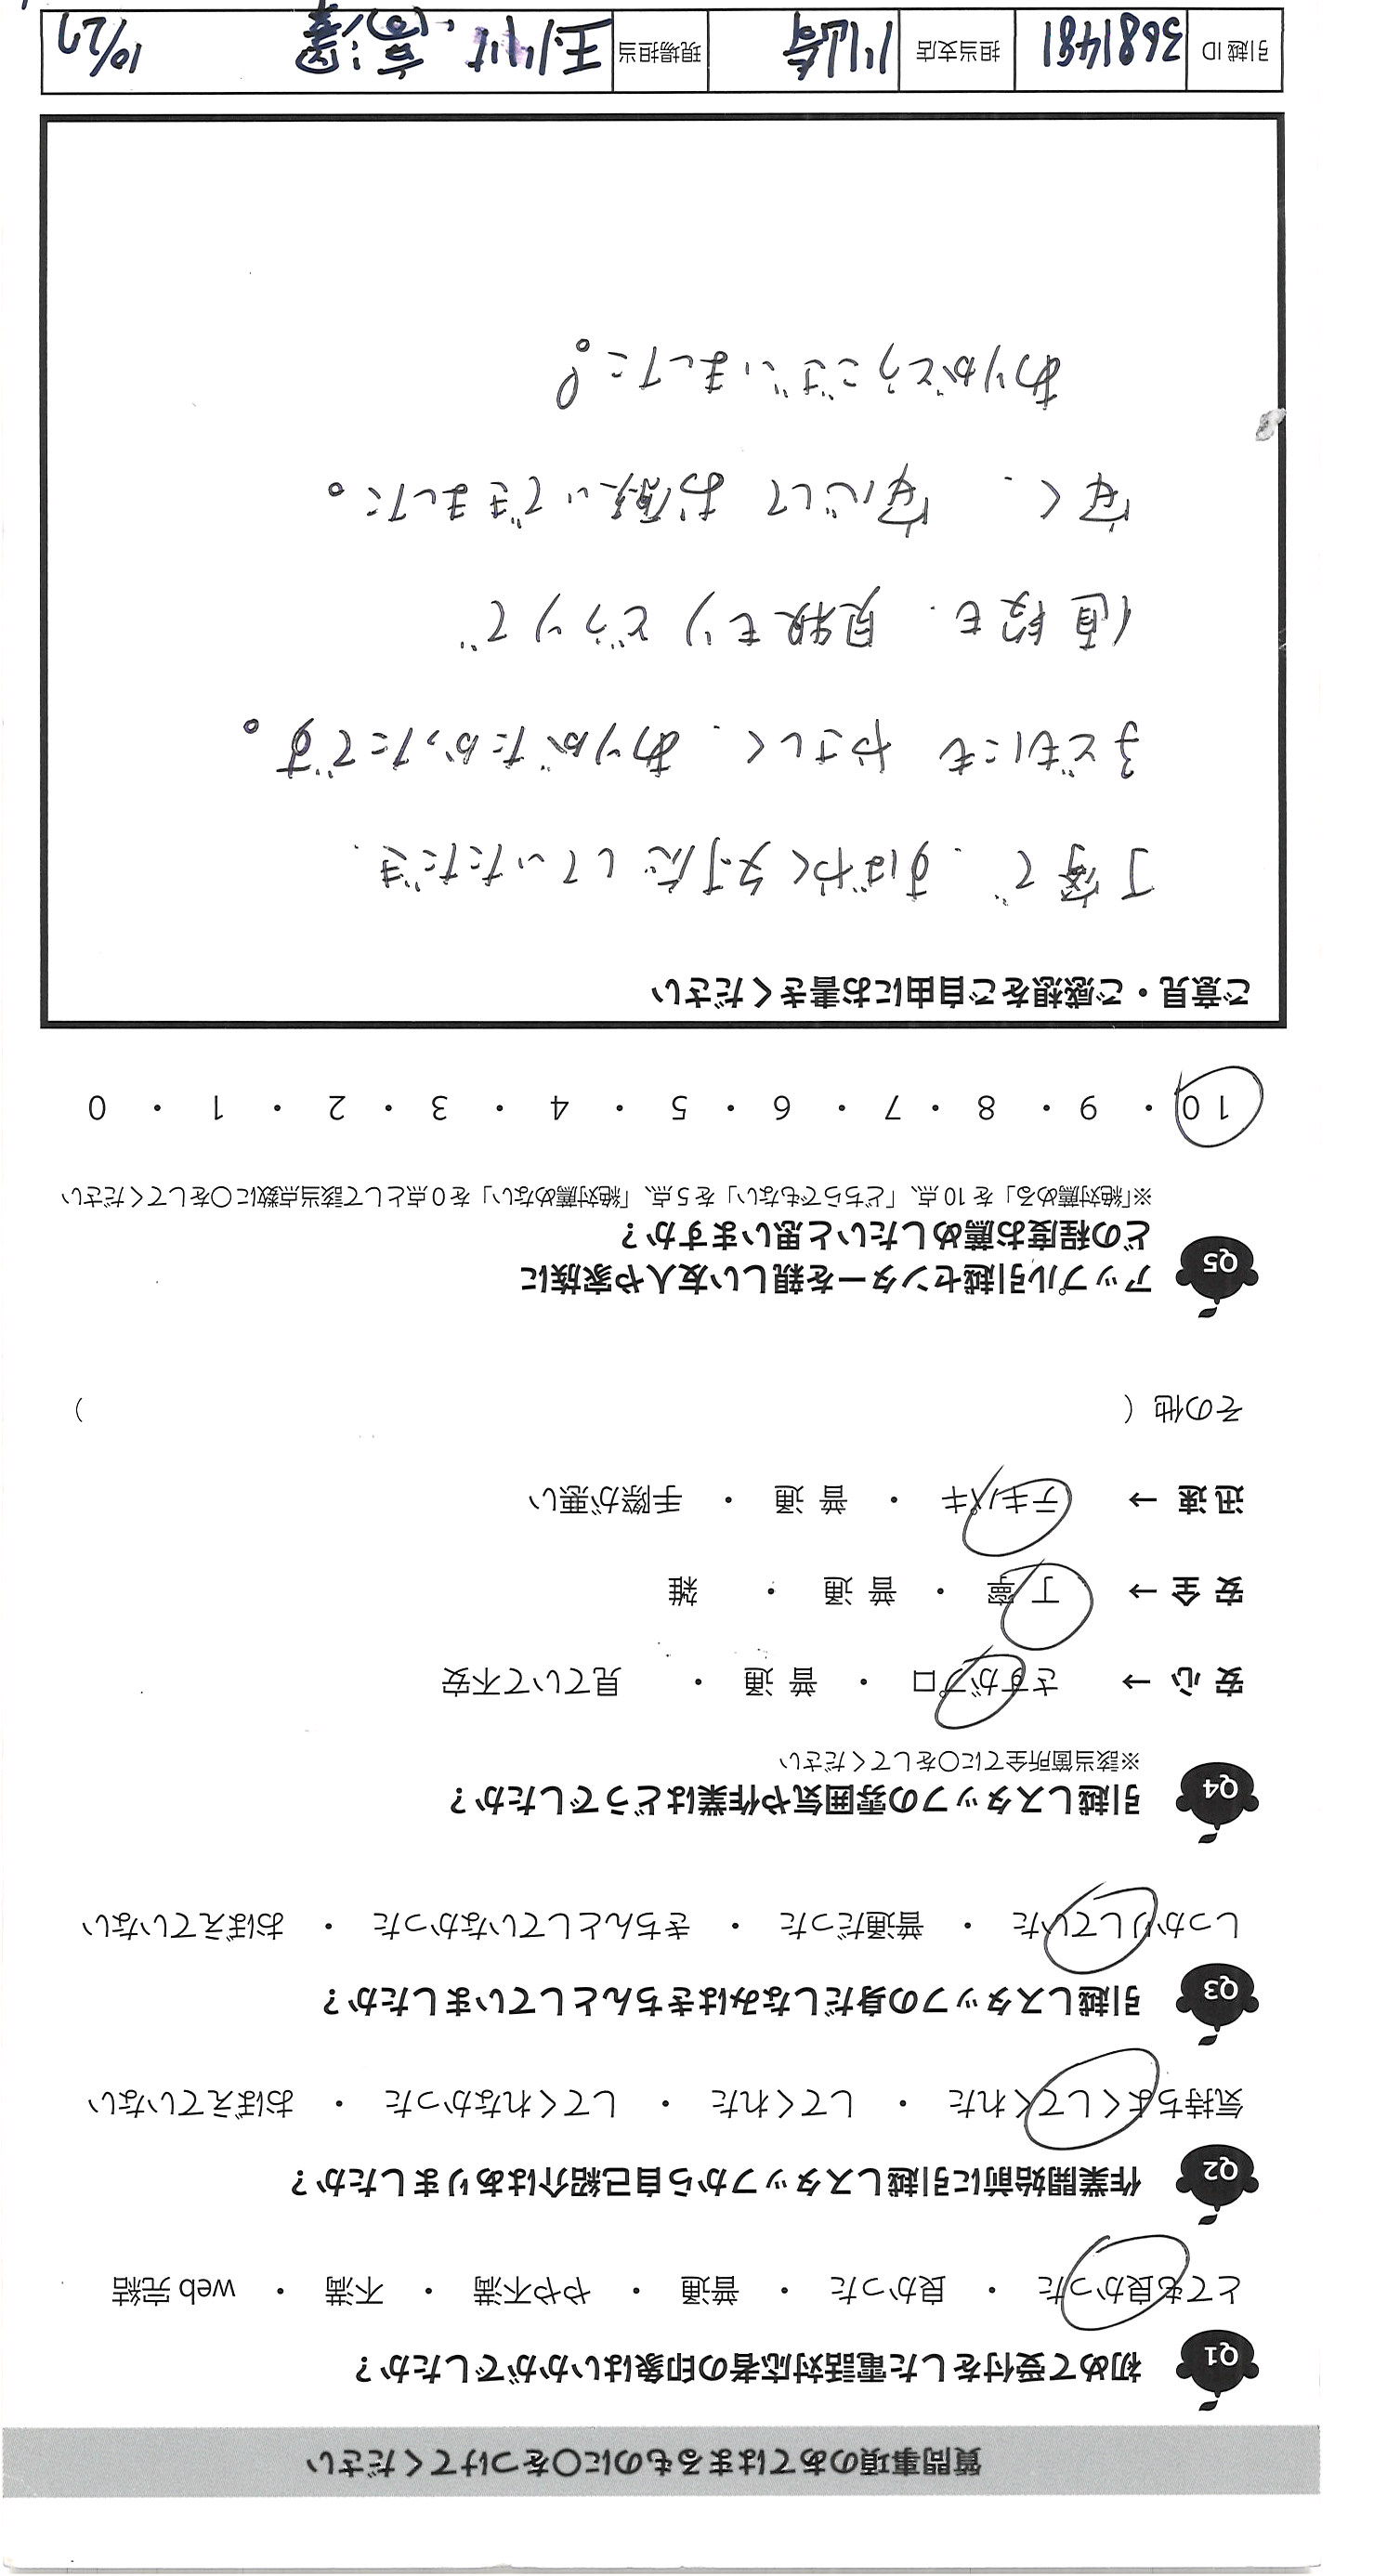 質問事項のあてはまるものに○をつけてください
Q1 初めて受付をした電話対応者の印象はいかがでしたか？
とても良かった ・ 良かった ・ 普通 ・ やや不満 ・ 不満 ・ web 完結
Q2 作業開始前に引越しスタッフから自己紹介はありましたか？
気持ちよくしてくれた ・ してくれた ・ してくれなかった ・ おぼえていない
Q3 引越しスタッフの身だしなみはきちんとしていましたか？
しっかりしていた ・ 普通だった ・ きちんとしていなかった ・ おぼえていない
Q4 引越しスタッフの雰囲気や作業はどうでしたか？
※該当箇所全てに○をしてください
安 心 → さすがプロ ・ 普 通 ・ 見ていて不安
安 全 → 丁 寧 ・ 普 通 ・ 雑
迅 速 → テキパキ ・ 普 通 ・ 手際が悪い
その他 （ ）
Q5 アップル引越センターを親しい友人や家族に
どの程度お薦めしたいと思いますか？
※「絶対薦める」を 10 点、「どちらでもない」を 5 点、「絶対薦めない」を 0 点として該当点数に○をしてください
10 ・ 9 ・ 8 ・ 7 ・ 6 ・ 5 ・ 4 ・ 3 ・ 2 ・ 1 ・ 0
ご意見・ご感想をご自由にお書きください
丁寧で、すばやく対応していただき、
子どもにも やさしく、ありがたかったです。
値段も、見積もりどうりで
安く、安心して お願いできました。
ありがとうございました！。
引越 ID 3681481 担当支店 川崎 現場担当 10/27